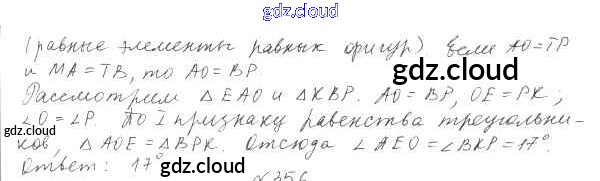 gdz.cloud
(равные элементы равных фигур) Если AO=TP
и MA=TB, то AO=BP.
gdz.cloud
Рассмотрим △EAO и △KBP. AO=BP, OE=PK;
∠O=∠P. По I признаку равенства треугольни-
gdz.cloud
ков, △AOE=△BPK. Отсюда ∠AEO=∠BKP=17°.
Ответ: 17°
gdz.cloud
gdz.cloud
№356